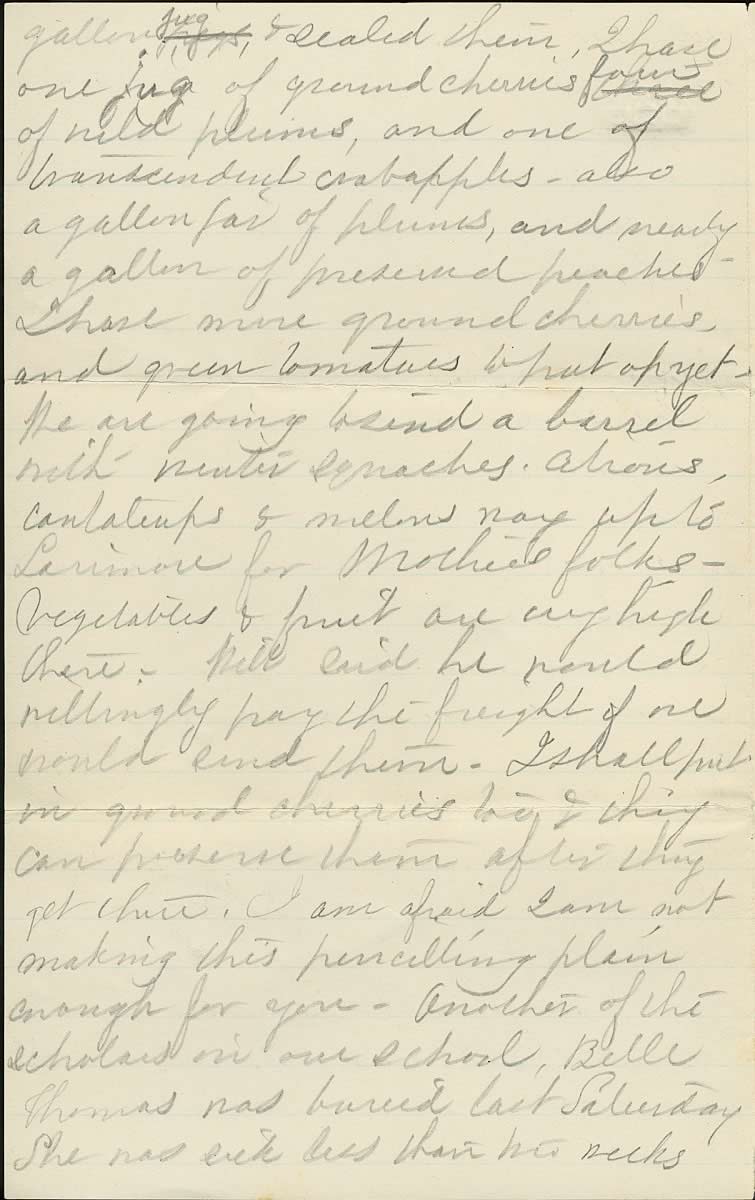 gallon jug jugs, & sealed them, I have
one jug of ground cherries four three
of wild plums, and one of
transcendent crabapples - also
a gallon jar of plums, and nearly
a gallon of preserved peaches -
I have more ground cherries,
and green tomatoes to put up yet -
We are going to send a barrel
with winter squaches. citrons,
cantaleups & melons way up to
Larimore for Mothies folks -
Vegetables & fruit are very high
there - Will said he would
willingly pay the freight if we
would send them - I shall put
in ground cherries too & they
can preserve them after they
get there. I am afraid I am not
making this pencilling plain
enough for you - Another of the
scholars in our school, Belle
Thomas was buried last Saturday
She was sick less than two weeks